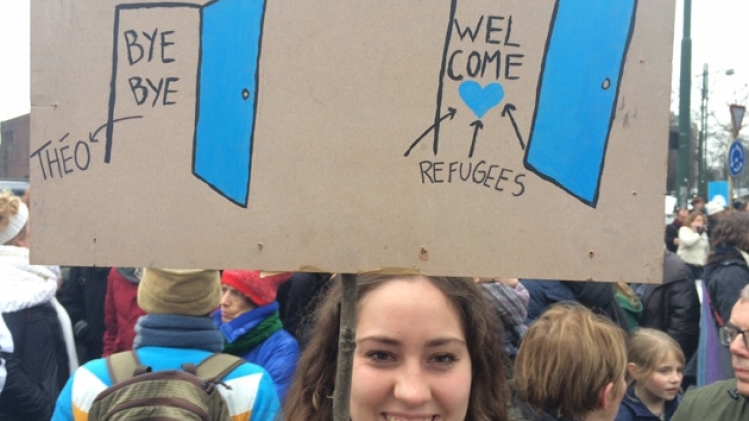 BYE
BYE
THÉO
WEL
COME
REFUGEES